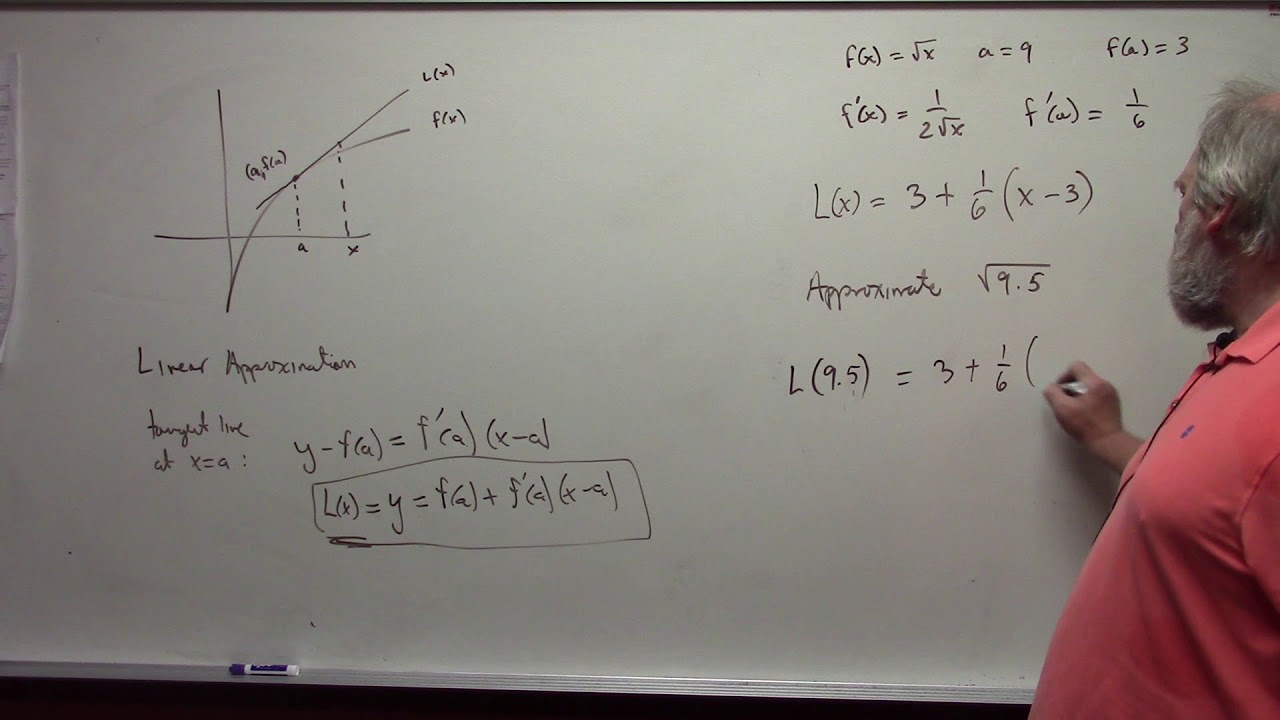 L(x)
f(x)
(a, f(a))
a x
Linear Approximation
tangent line
at x=a :
y-f(a) = f'(a)(x-a)
L(x) = y = f(a) + f'(a)(x-a)
f(x) = √x a = 9 f(a) = 3
f'(x) = 1/(2√x) f'(a) = 1/6
L(x) = 3 + 1/6 (x-3)
Approximate √9.5
L(9.5) = 3 + 1/6 (